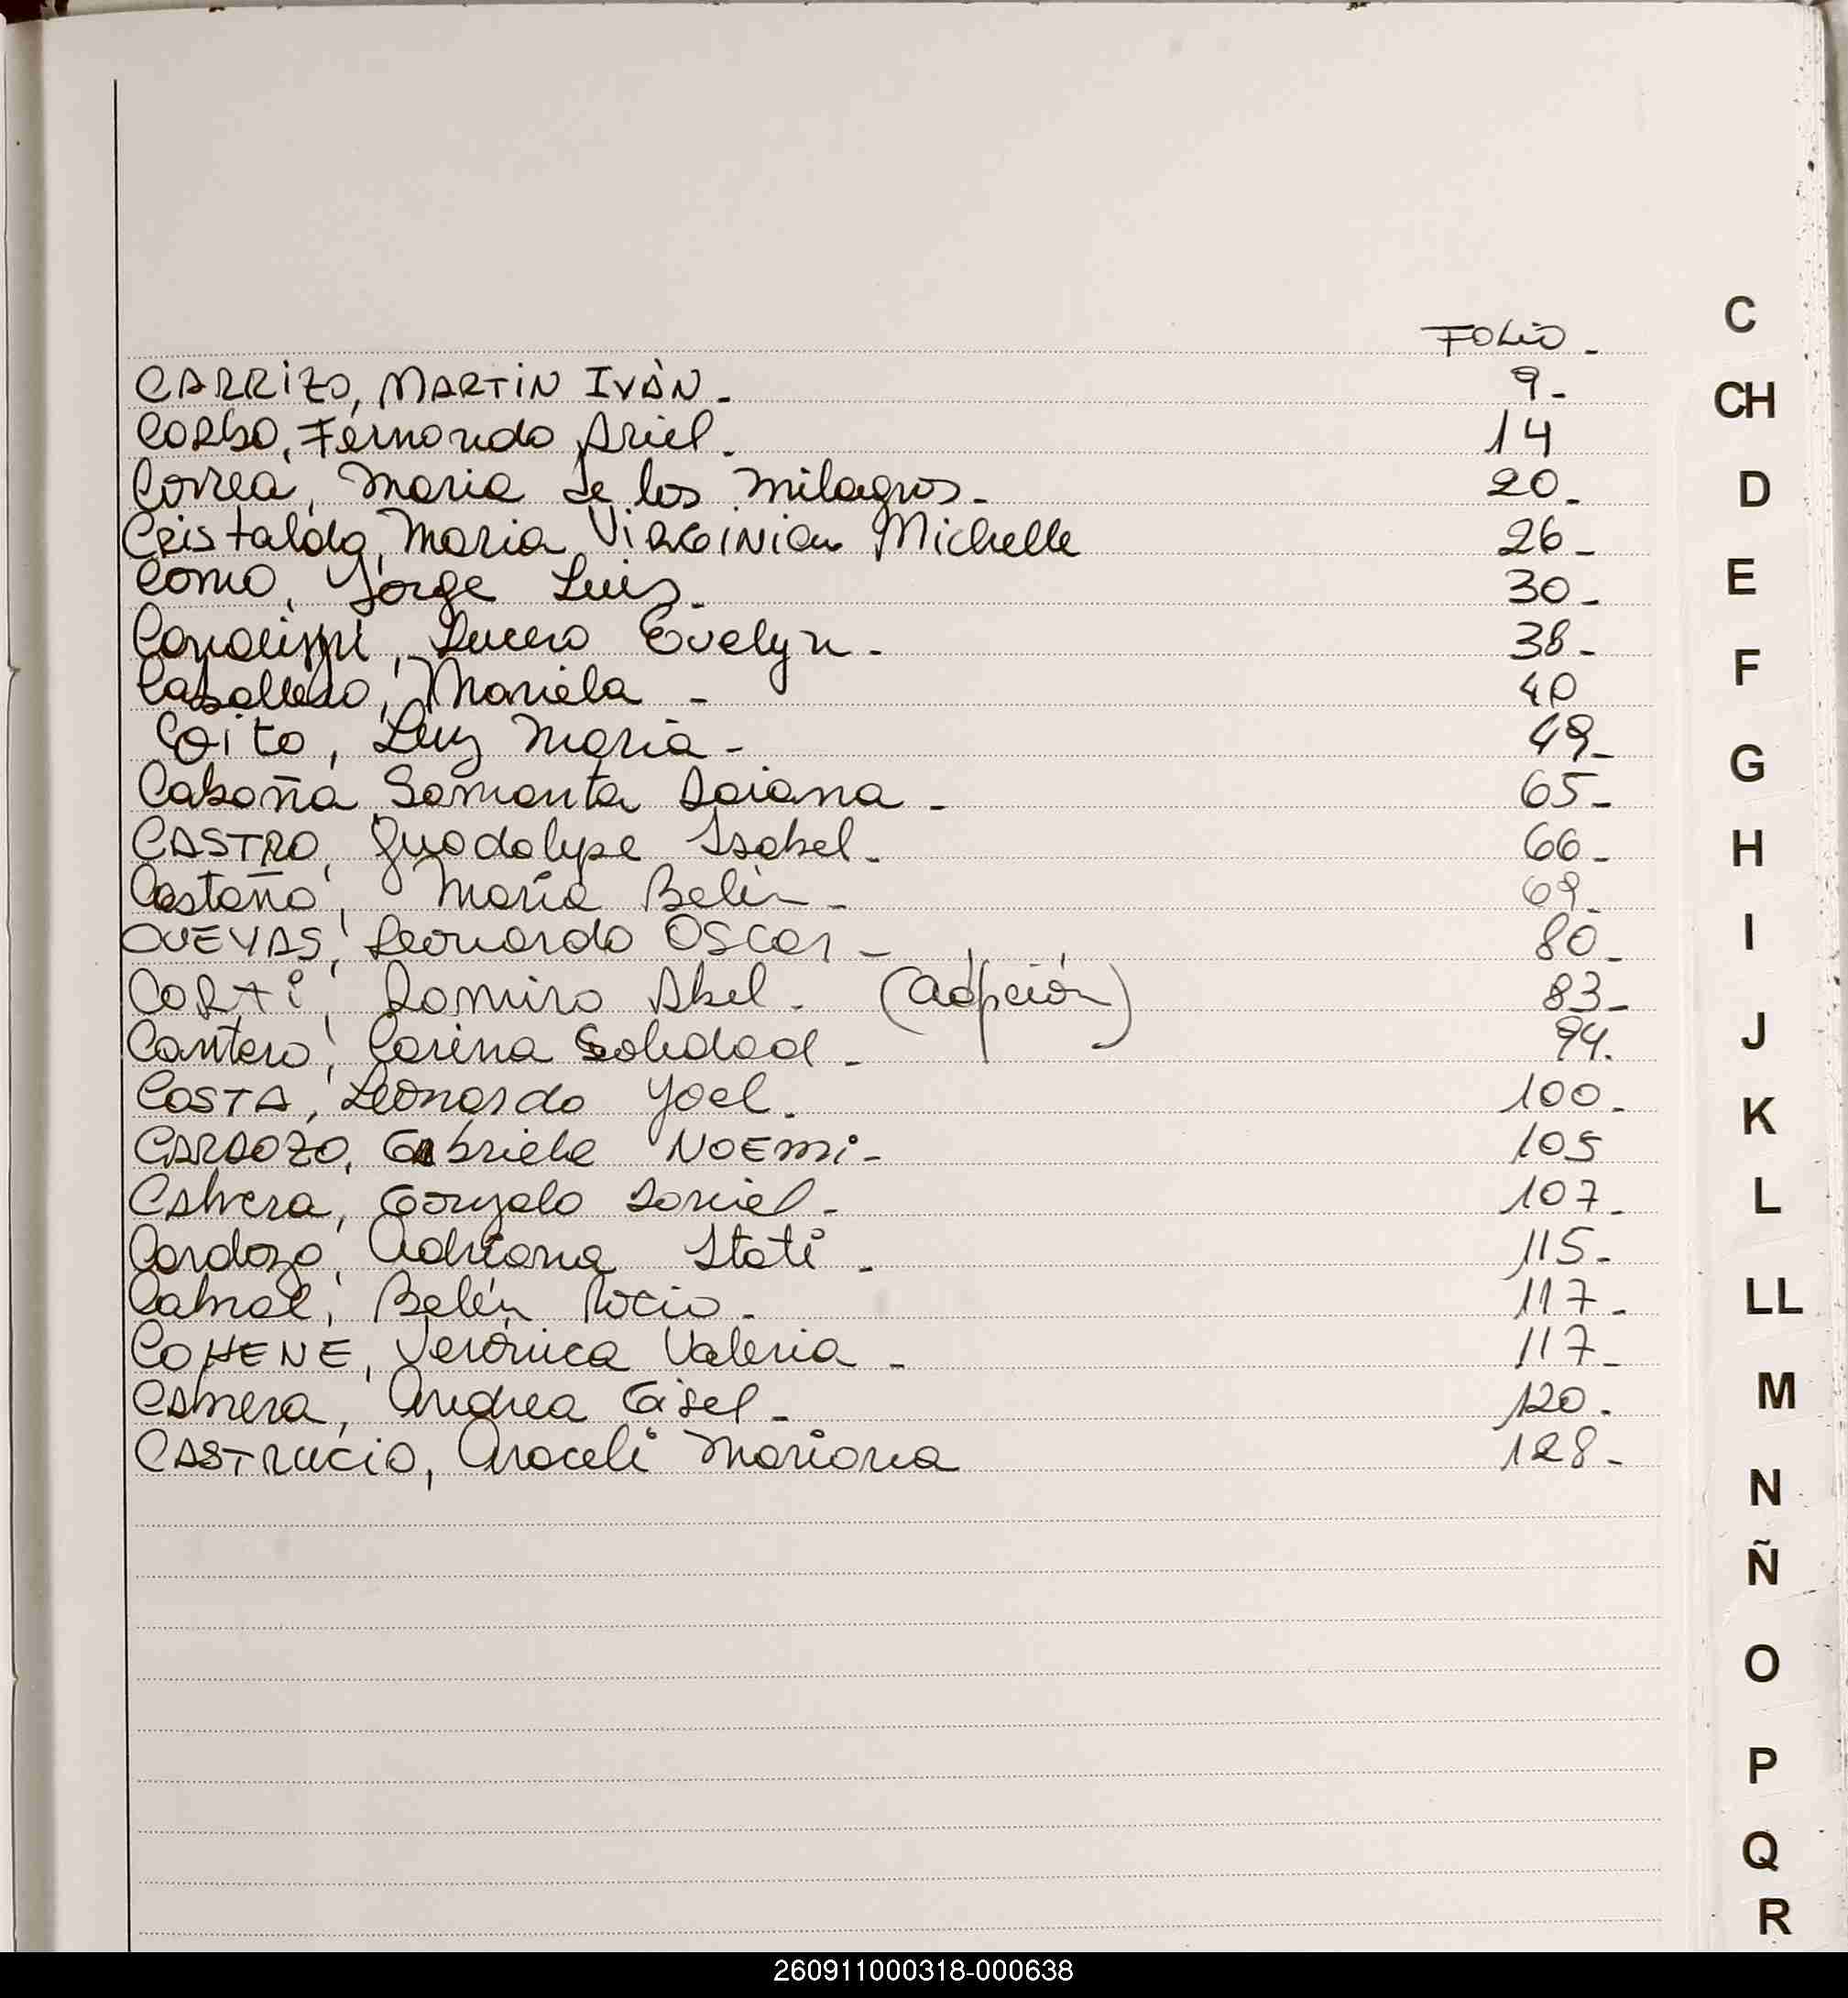 FOLIO -
CARRIZO, MARTIN IVÁN - 9 -
CORBO, Fernando Ariel - 14
Correa, Maria de los milagros - 20 -
Cristaldo, Maria Virginia Michelle 26 -
Como, Jorge Luis - 30 -
Lucero Evelyn - 38 -
Caballero, Mariela - 40
Coito, Luz Maria - 49 -
Cabaña Samanta Daiana - 65 -
CASTRO, Guadalupe Isabel - 66 -
Castaño, María Belén - 69 -
CUEVAS, Leonardo Oscar - 80 -
CORTi, Ramiro Abel - (adopción) 83 -
Cantero, Carina Soledad - 94.
COSTA, Leonardo Yoel. 100 -
CARDOZO, Gabriela NOEMi - 105
CABrera, Gonzalo Daniel - 107 -
Cardozo, Adriana Itati - 115 -
Cabral, Belén Rocio - 117 -
COHENE, Verónica Valeria - 117 -
CABrera, Andrea Gisel - 120 -
CASTRUCIO, Araceli Mariana 128 -
C
CH
D
E
F
G
H
I
J
K
L
LL
M
N
Ñ
O
P
Q
R
260911000318-000638